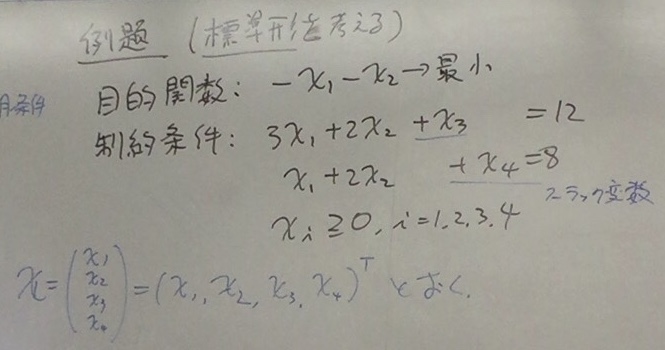 例題 (標準形を考える)
目的関数: -x₁-x₂→最小
制約条件: 3x₁+2x₂+x₃ =12
x₁+2x₂ +x₄=8
スラック変数
xᵢ≧0, i=1,2,3,4
x=(x₁ x₂ x₃ x₄)=(x₁, x₂, x₃, x₄)ᵀ とおく.